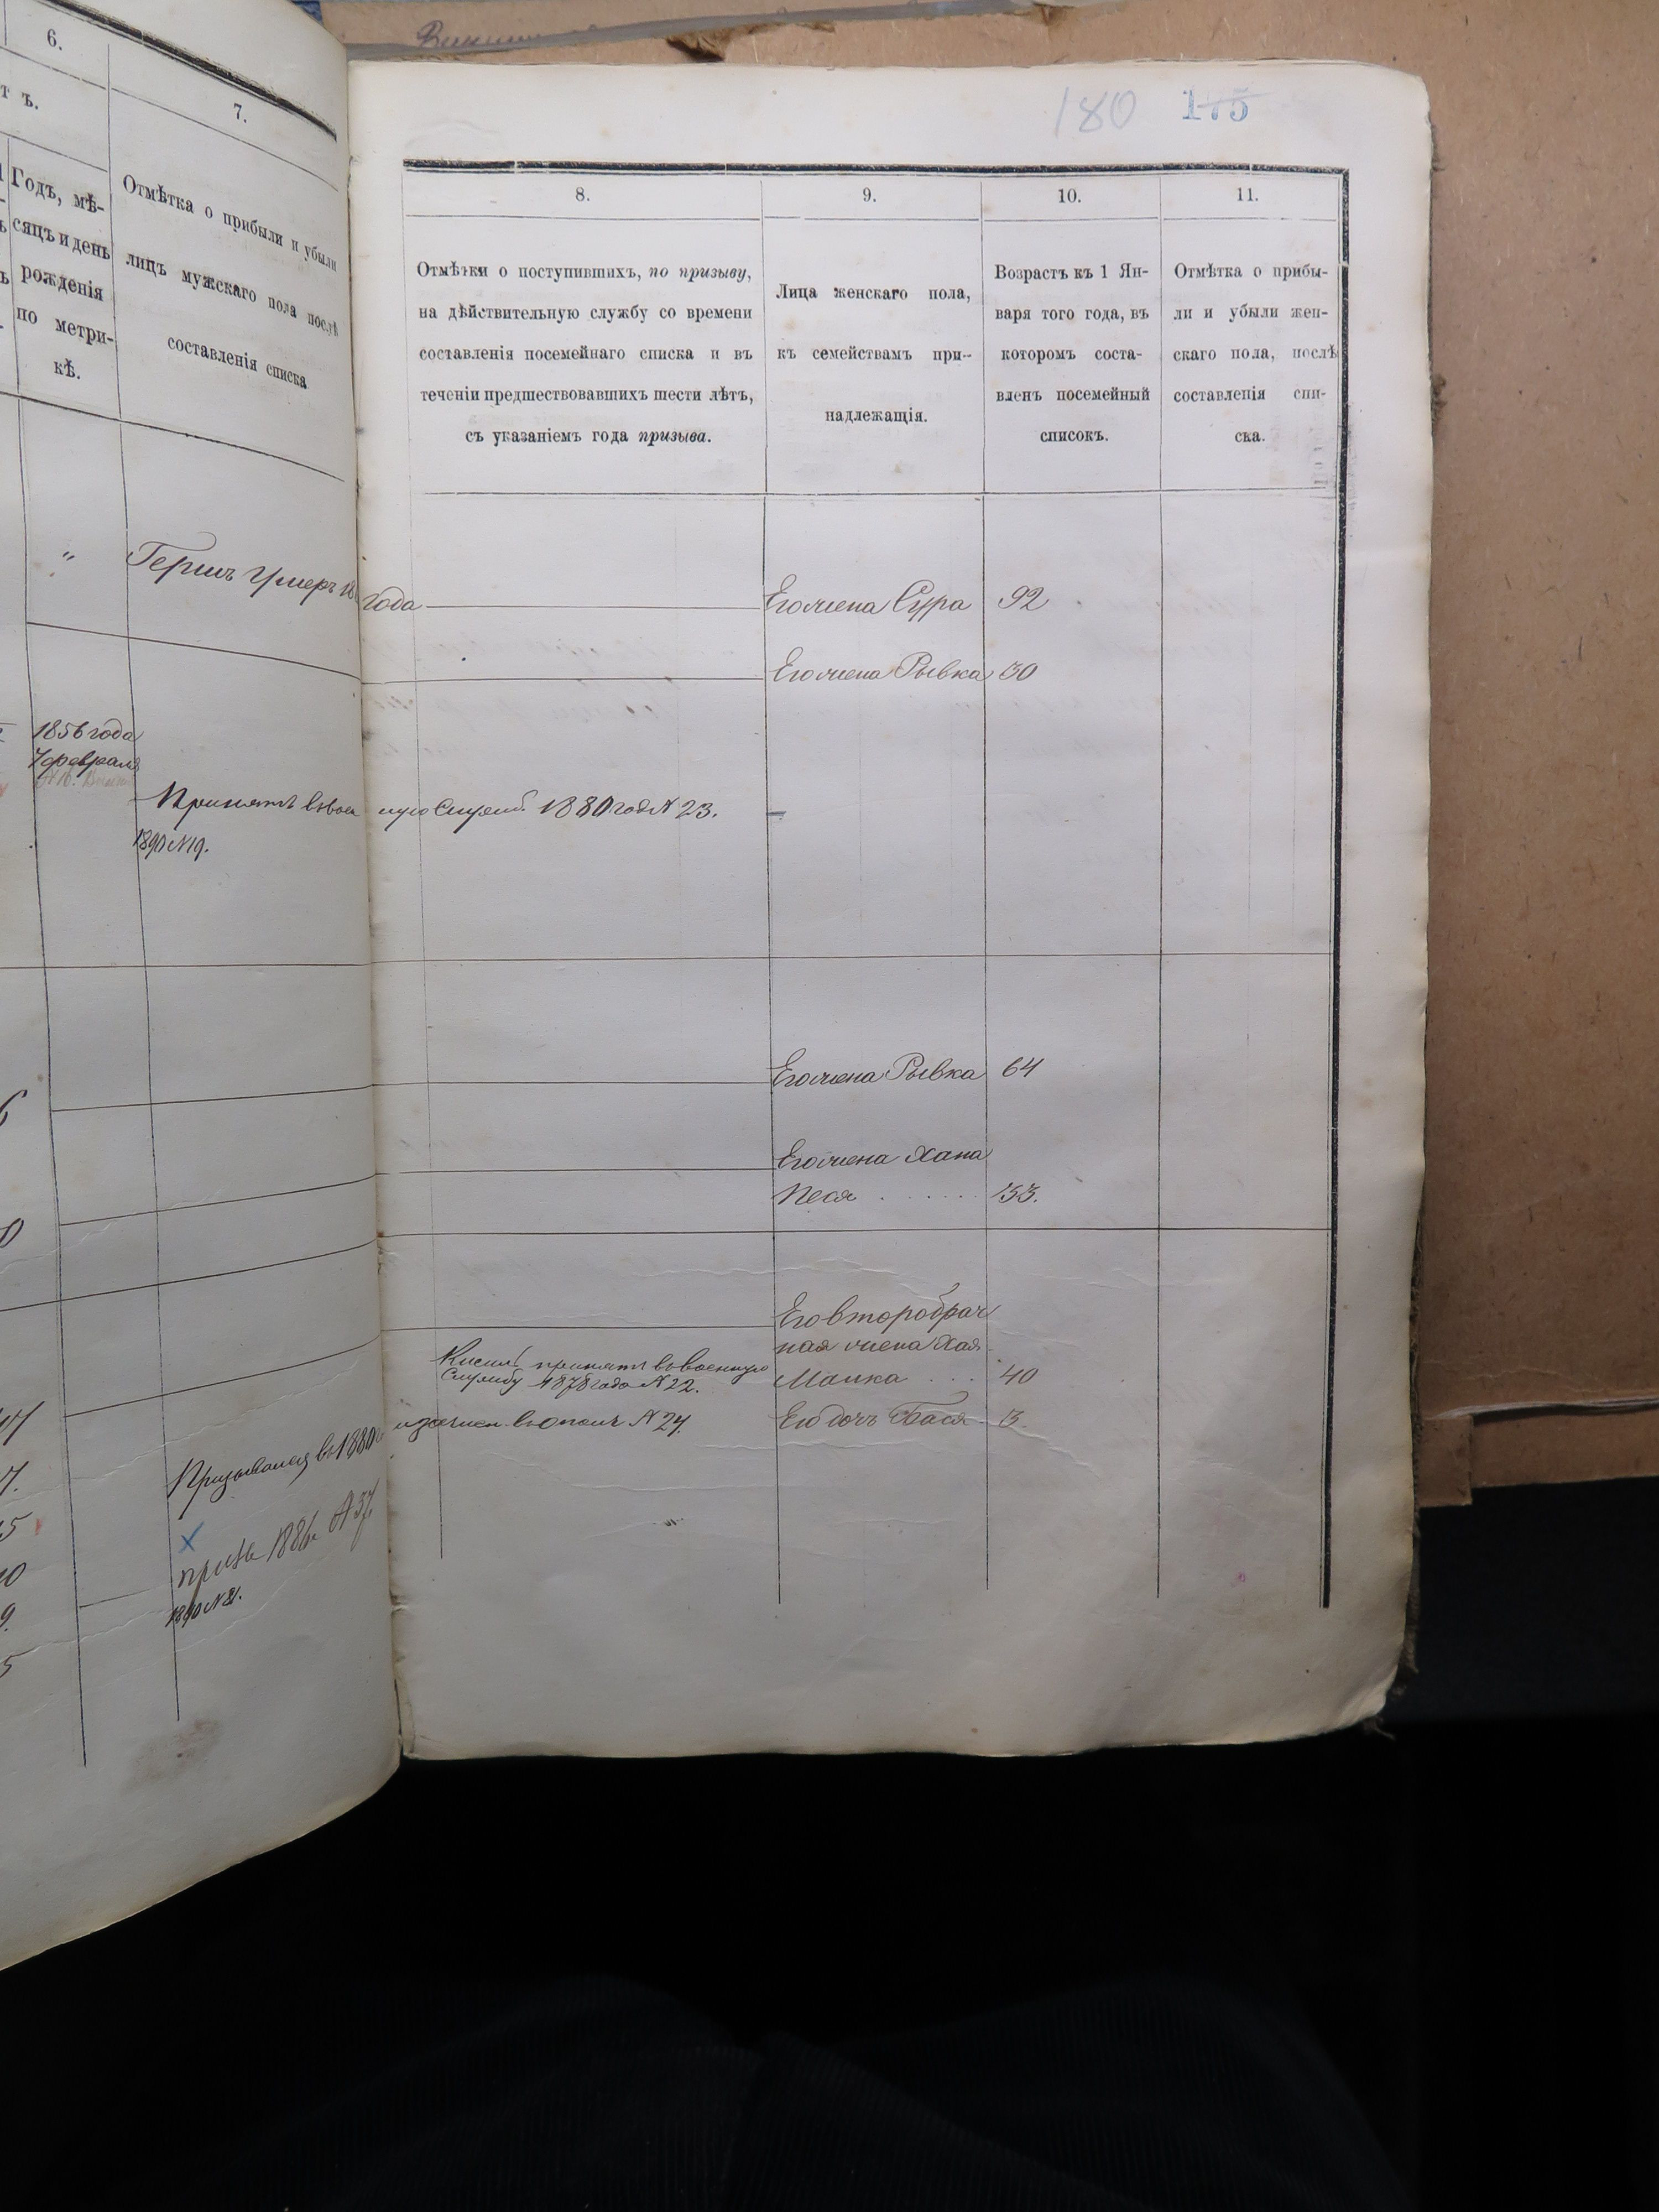 180 175
6.
тъ.
7.
Годъ, мѣ-
сяцъ и день
рожденія
по метри-
кѣ.
Отмѣтка о прибыли и убыли
лицъ мужскаго пола послѣ
составленія списка
8.
9.
10.
11.
Отмѣтки о поступившихъ, по призыву,
на дѣйствительную службу со времени
составленія посемейнаго списка и въ
теченіи предшествовавшихъ шести лѣтъ,
съ указаніемъ года призыва.
Лица женскаго пола,
къ семействамъ при-
надлежащія.
Возрастъ къ 1 Ян-
варя того года, въ
которомъ соста-
вленъ посемейный
списокъ.
Отмѣтка о прибы-
ли и убыли жен-
скаго пола, послѣ
составленія спи-
ска.
" Гершъ Умеръ 18 года Его жена Сура 92
Его жена Рывка 30
1856 года
7 февраля
Принятъ въ воен ную Служб. 1880 год № 23.
1890 № 19.
Его жена Рывка 64
Его жена Хана
Песя 33.
Его второбрач
ная жена Хая
Малка 40
Кисиль принятъ въ военную
Службу 1878 года № 22.
Призывался въ 1880 и зачисл. въ ополч № 24. Его дочь Бася 3.
х
1886 № 37